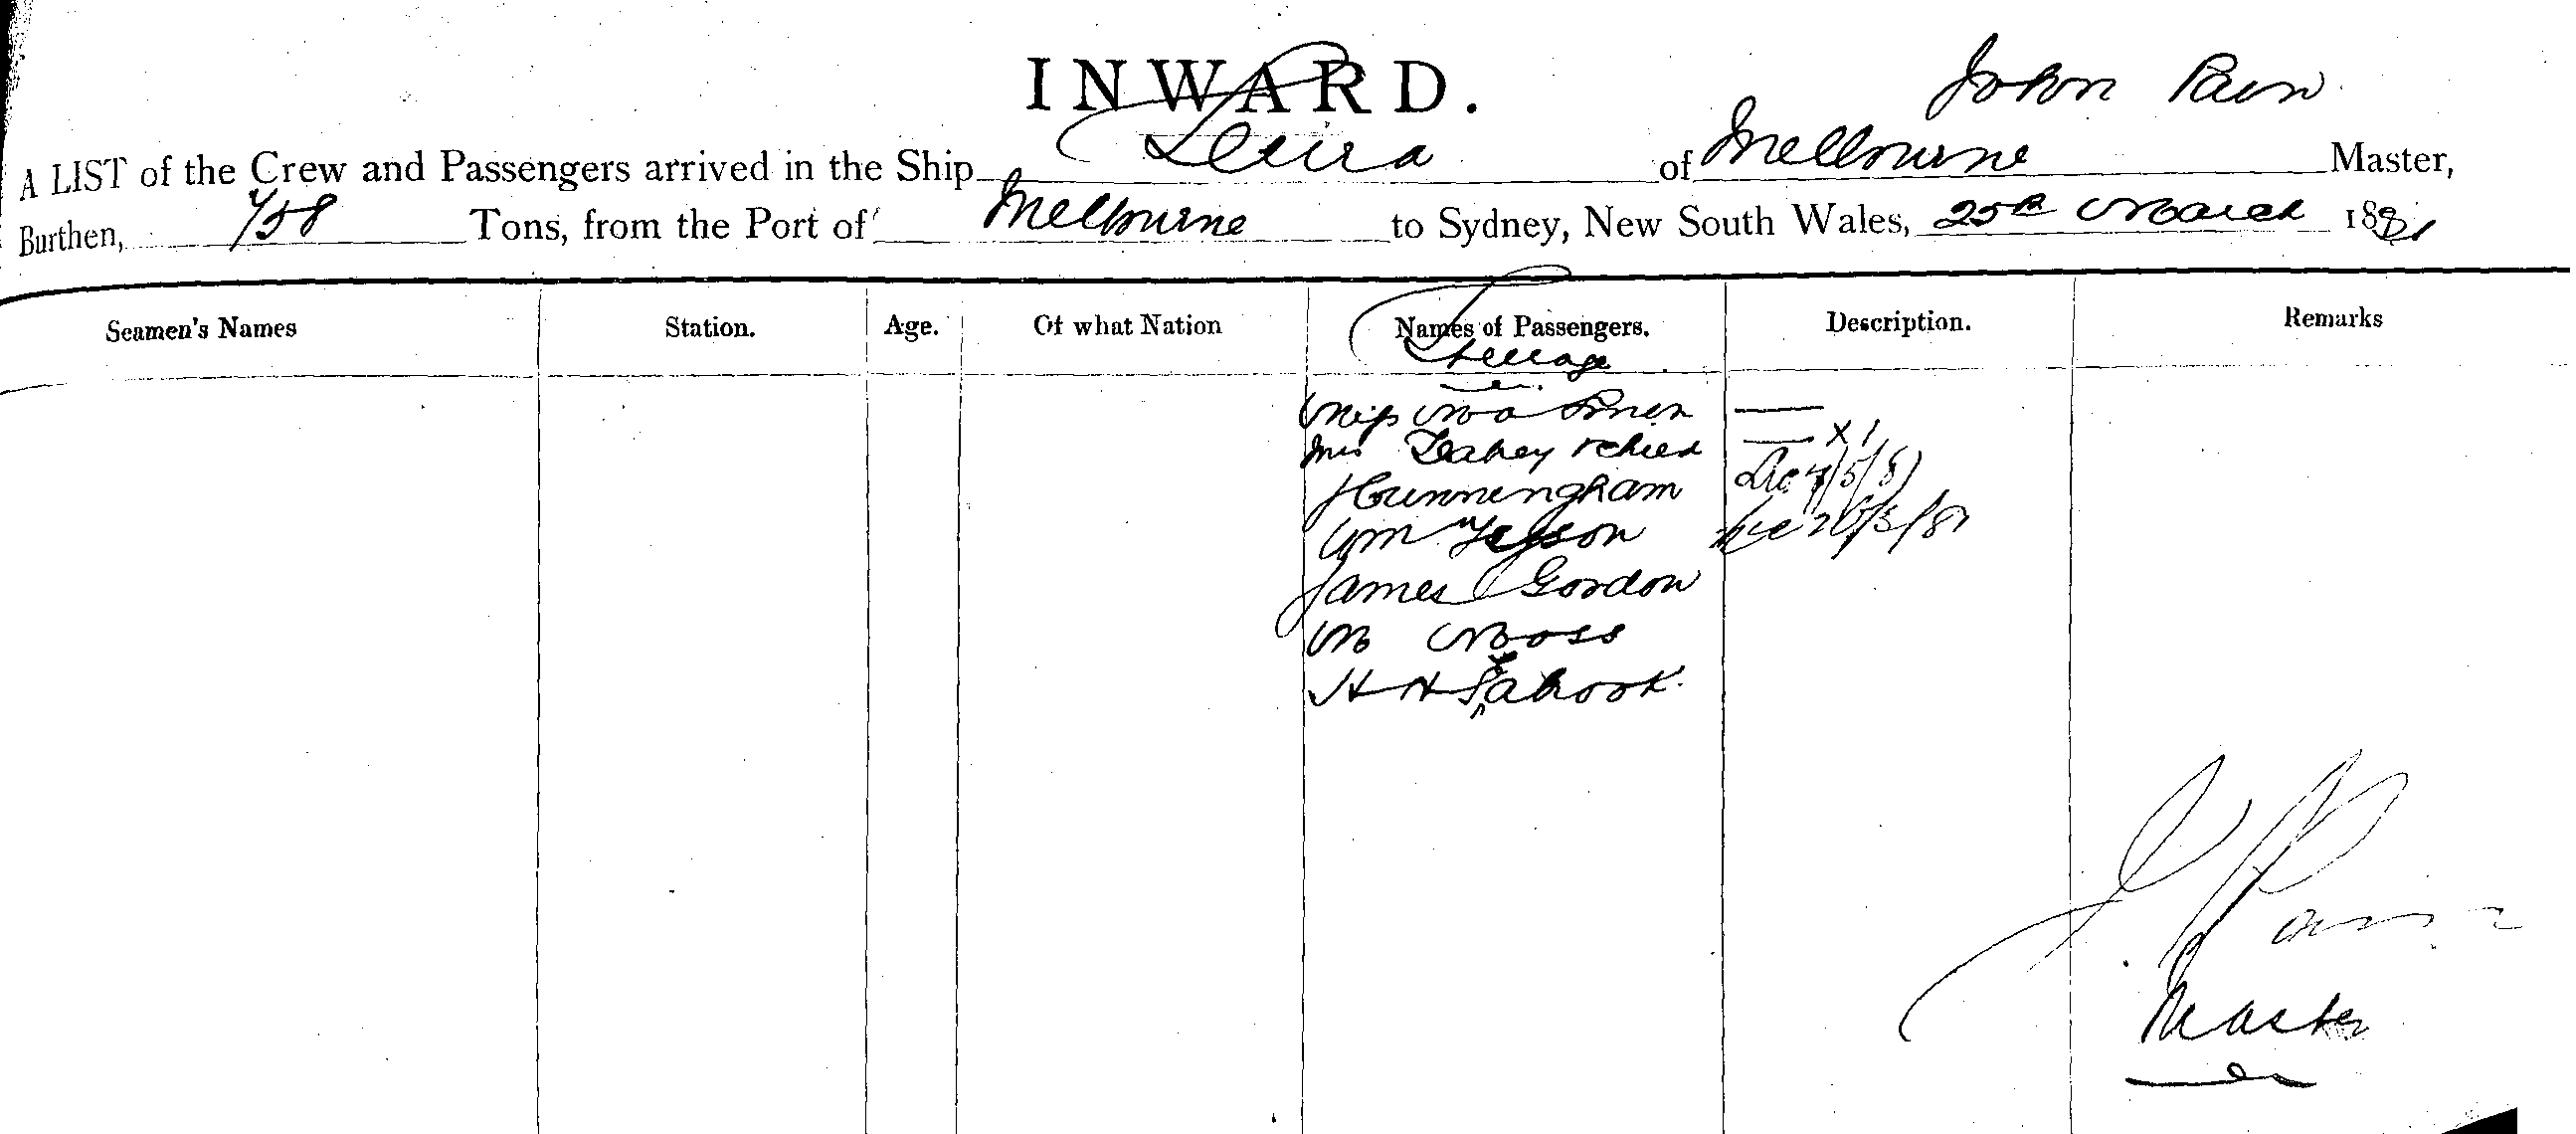 INWARD.
John Pain
A LIST of the Crew and Passengers arrived in the Ship Leura of Melbourne Master,
Burthen, 758 Tons, from the Port of Melbourne to Sydney, New South Wales, 25th March 1881
Seamen's Names Station. Age. Of what Nation Names of Passengers. Description. Remarks
Steerage
Miss
Mrs Leahey & child — x 1
J Cunningham
Wm
James Gordon
M Moss
H H
J. Pain
Master